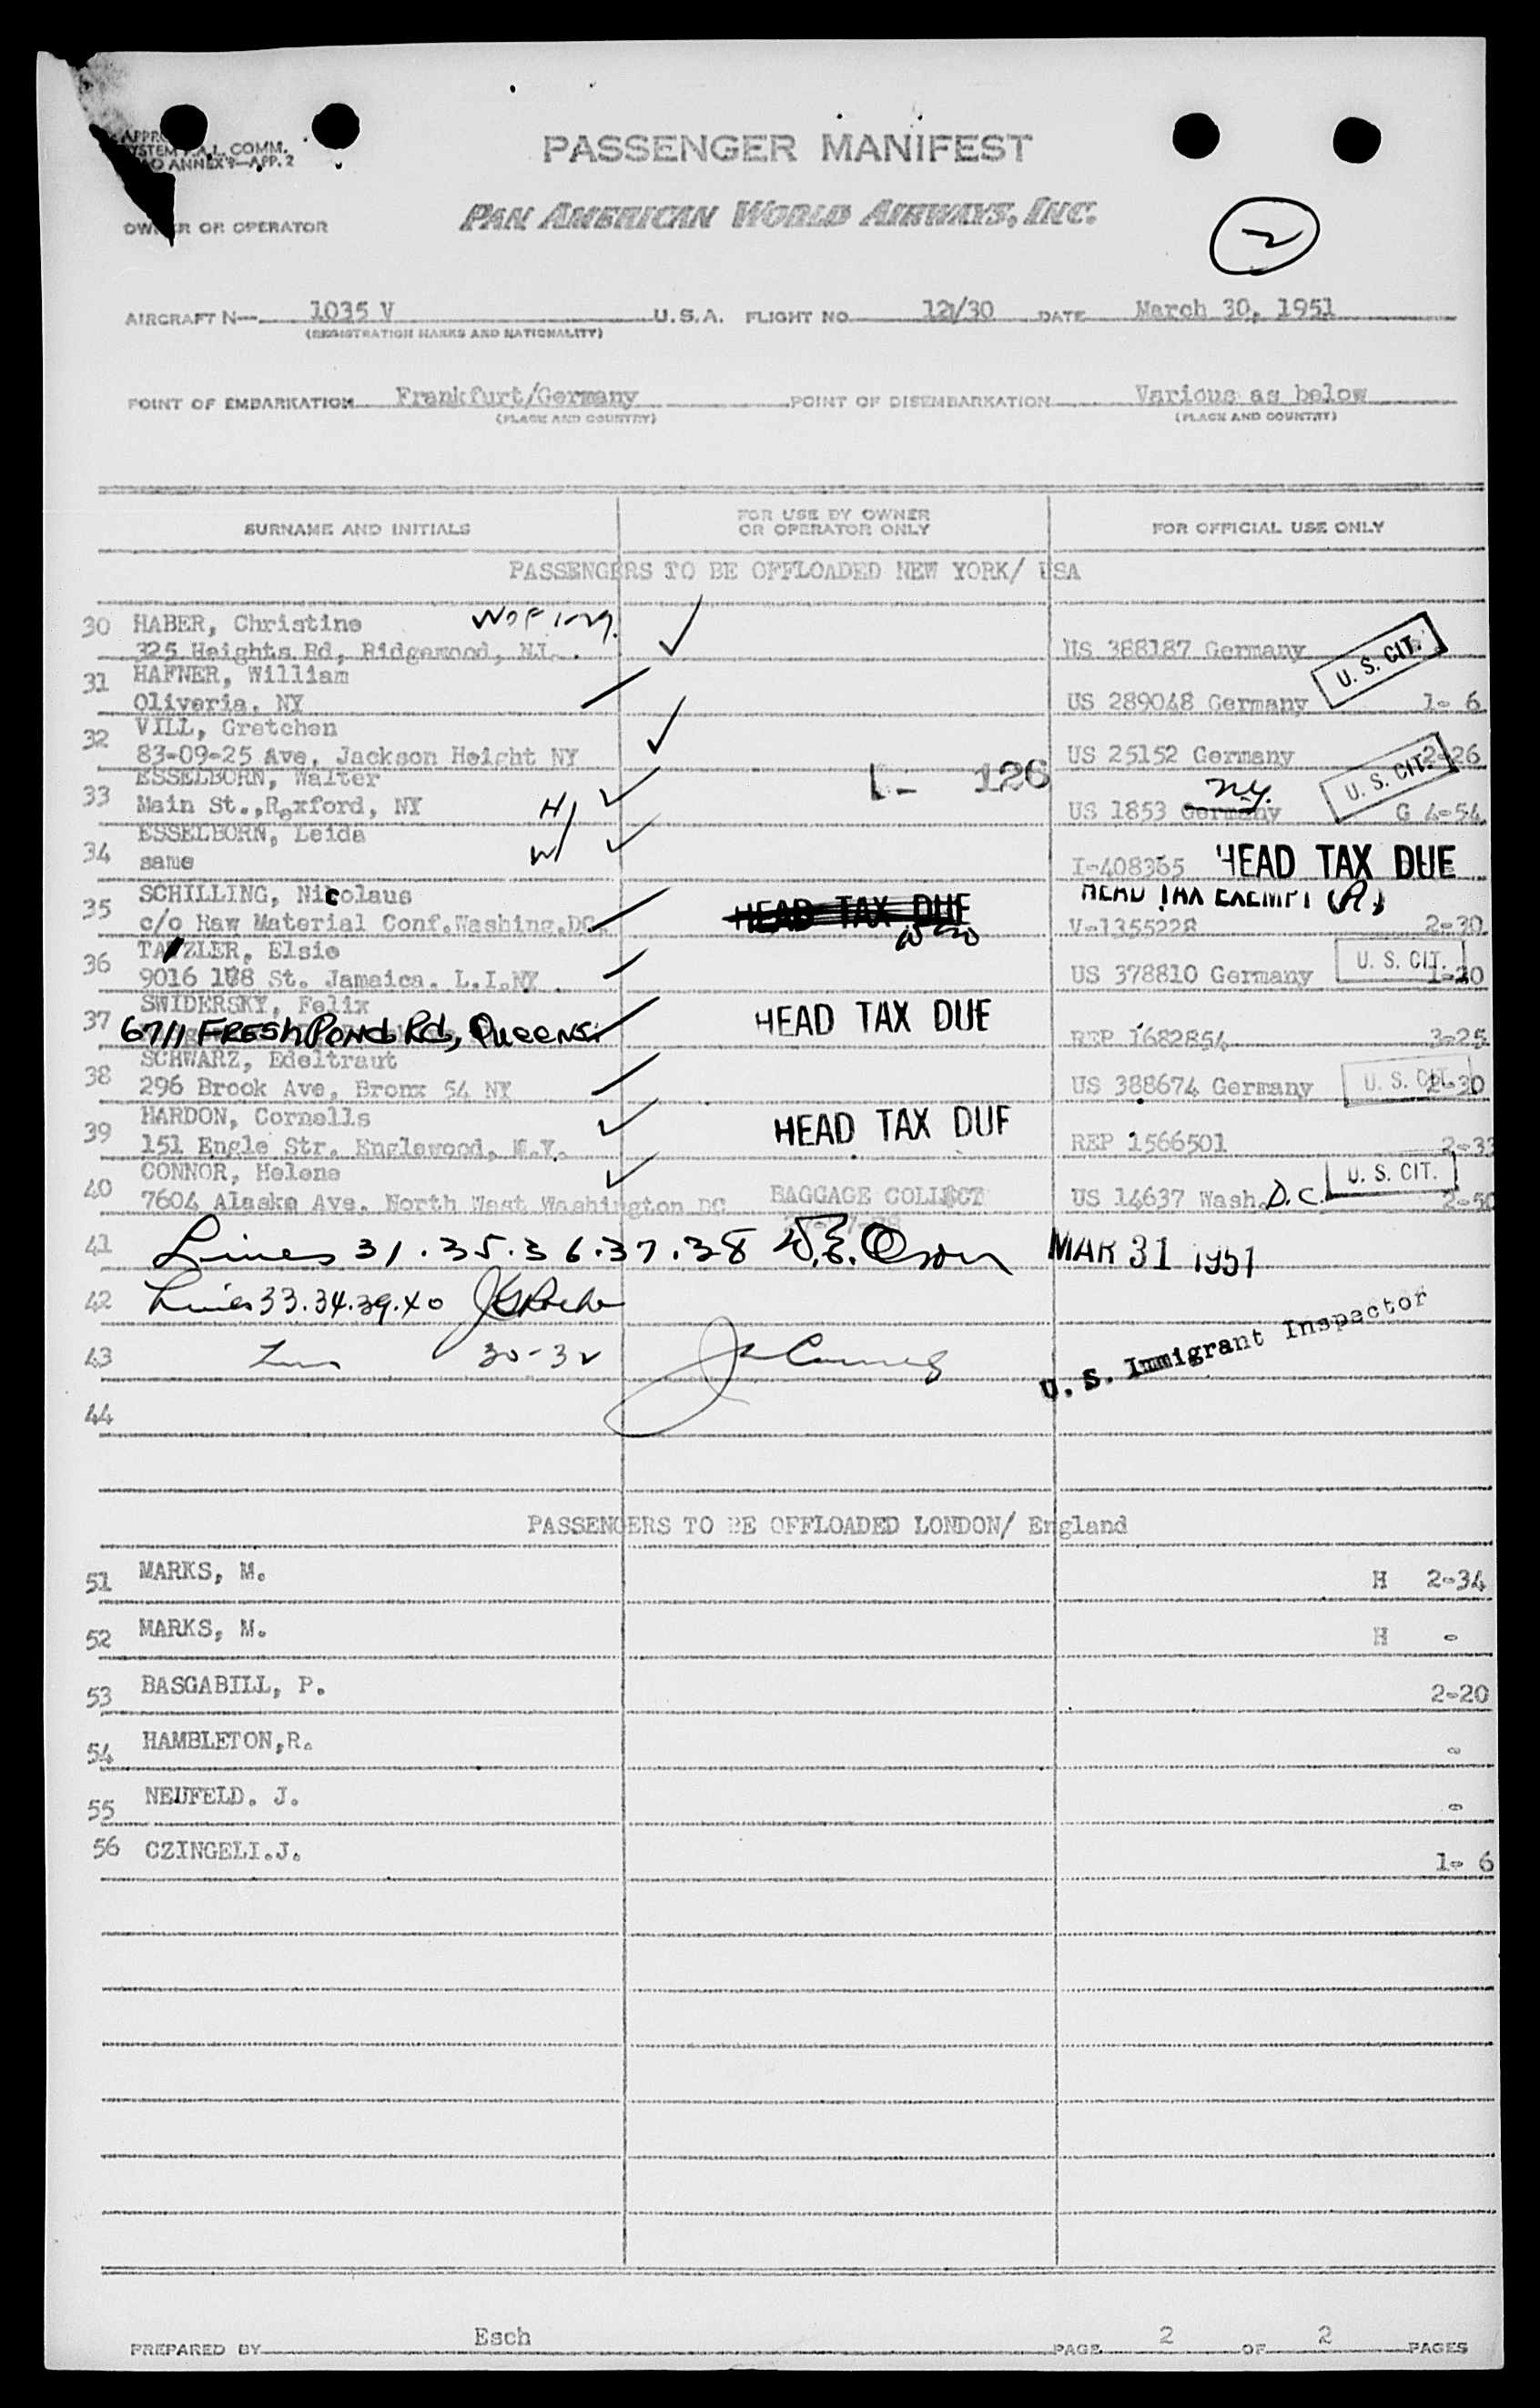 SYSTEM F.A.L. COMM.
ANNEX 9—APP. 2
PASSENGER MANIFEST
OWNER OR OPERATOR
PAN AMERICAN WORLD AIRWAYS, INC.
2
AIRCRAFT N— 1035 V U.S.A. FLIGHT NO. 121/30 DATE March 30, 1951
(REGISTRATION MARKS AND NATIONALITY)
POINT OF EMBARKATION Frankfurt/Germany POINT OF DISEMBARKATION Various as below
(PLACE AND COUNTRY) (PLACE AND COUNTRY)
SURNAME AND INITIALS FOR USE BY OWNER OR OPERATOR ONLY FOR OFFICIAL USE ONLY
PASSENGERS TO BE OFFLOADED NEW YORK/ USA
30 HABER, Christine
325 Heights Rd, Ridgewood, NJ. US 388187 Germany U. S. CIT.
31 HAFNER, William
Oliveria, NY US 289048 Germany 1- 6
32 VILL, Gretchen
83-09-25 Ave, Jackson Height NY US 25152 Germany 2-26
U. S. CIT.
33 ESSELBORN, Walter 1- 126
Main St.,Rexford, NY H/ US 1853 Germany N.Y. G 4-54
34 ESSELBORN, Leida
same W/ I-408365 HEAD TAX DUE
35 SCHILLING, Nicolaus HEAD TAX DUE HEAD TAX EXEMPT (R)
c/o Raw Material Conf.Washing.DC. V-1355228 2-30
36 TANZLER, Elsie U. S. CIT.
9016 188 St. Jamaica. L.I.NY. US 378810 Germany 1-20
37 SWIDERSKY, Felix HEAD TAX DUE
6711 FRESH POND Rd, QUEENS. REP 1682854 3-25
38 SCHWARZ, Edeltraut U. S. CIT.
296 Brook Ave, Bronx 54 NY US 388674 Germany 2-30
39 HARDON, Cornells HEAD TAX DUE
151 Engle Str. Englewood, N.Y. REP 1566501 2-33
40 CONNOR, Helene U. S. CIT.
7604 Alaska Ave. North West Washington DC BAGGAGE COLLECT US 14637 Wash. D.C. 2-50
41 Lines 31.35.36.37.38 W.E. Olson MAR 31 1951
42 Lines 33.34.39.40
43 30-32 U. S. Immigrant Inspector
44
PASSENGERS TO BE OFFLOADED LONDON/ England
51 MARKS, M. H 2-34
52 MARKS, M. H -
53 BASGABILL, P. 2-20
54 HAMBLETON,R. -
55 NEUFELD. J. -
56 CZINGELI.J. 1- 6
PREPARED BY Esch PAGE 2 OF 2 PAGES